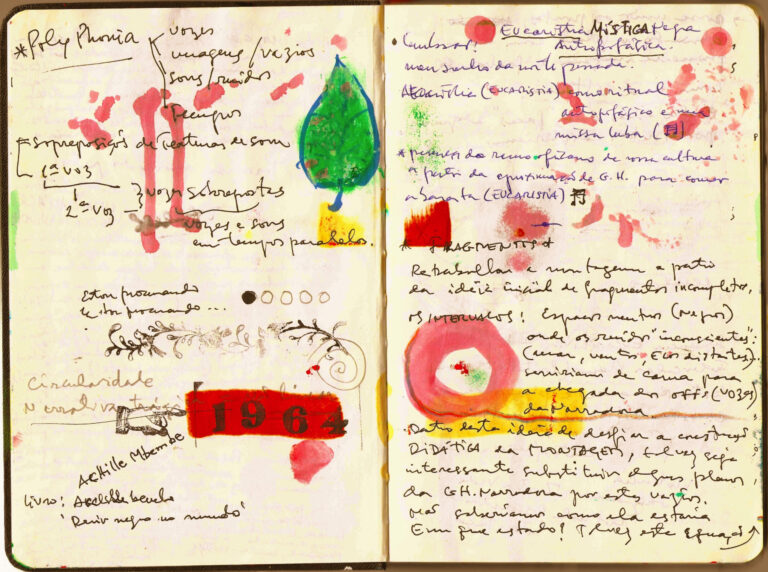 *Polyphonia
vozes
imagens/vazios
sons/ruídos
tempos
sobreposição de texturas de som
1ª voz
2ª voz
vozes sobrepostas
vozes e sons
em tempos paralelos.
Estou procurando
Estou procurando ...
Circularidade
Narrativa
1964
Achille Mbembe
Livro:
"Devir negro no mundo"
Eucaristia MÍSTICA Negra
Antropofágica.
Lembrar!
meu sonho da noite passada.
(EUCARISTIA) como ritual
antropofágico e uma
missa luba
* africano de nossa cultura
a partir da de G.H. para comer
a barata (EUCARISTIA)
* FRAGMENTOS *
Retrabalhar a montagem a partir
da ideia inicial de fragmentos incompletos.
OS INTERVALOS: Espaços mortos (negros)
onde os ruídos "inconscientes":
(mar, ventos, ecos distantes)
serviriam de cama para
a chegada dos offs (vozes)
da Narradora.
Dentro desta ideia de a construção
DIDÁTICA da MONTAGEM, talvez seja
interessante substituir alguns planos
da G.H. Narradora por estes vazios.
Não saberíamos como ela estaria
Em que estado! Talvez este